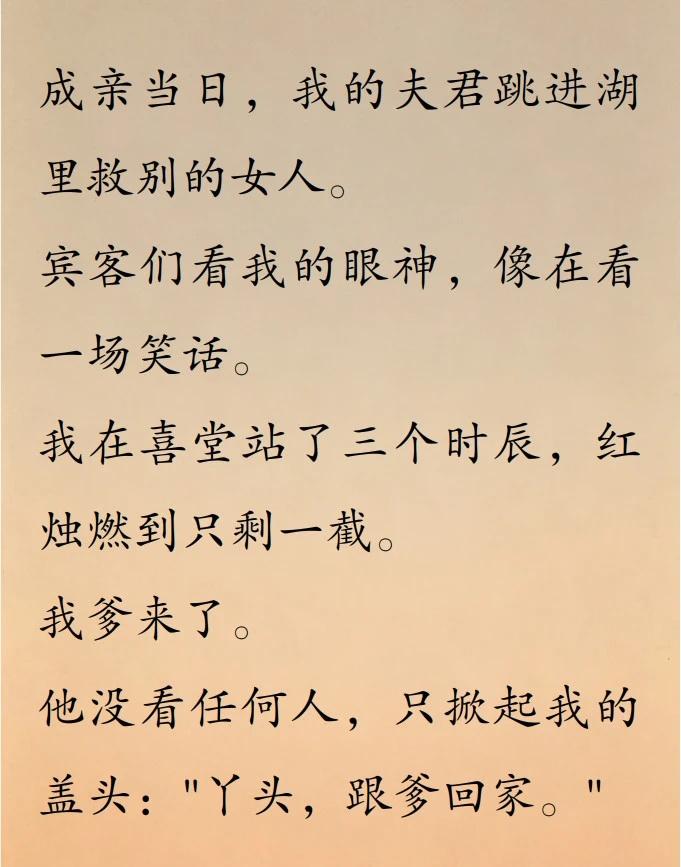 成亲当日，我的夫君跳进湖
里救别的女人。
宾客们看我的眼神，像在看
一场笑话。
我在喜堂站了三个时辰，红
烛燃到只剩一截。
我爹来了。
他没看任何人，只掀起我的
盖头："丫头，跟爹回家。"